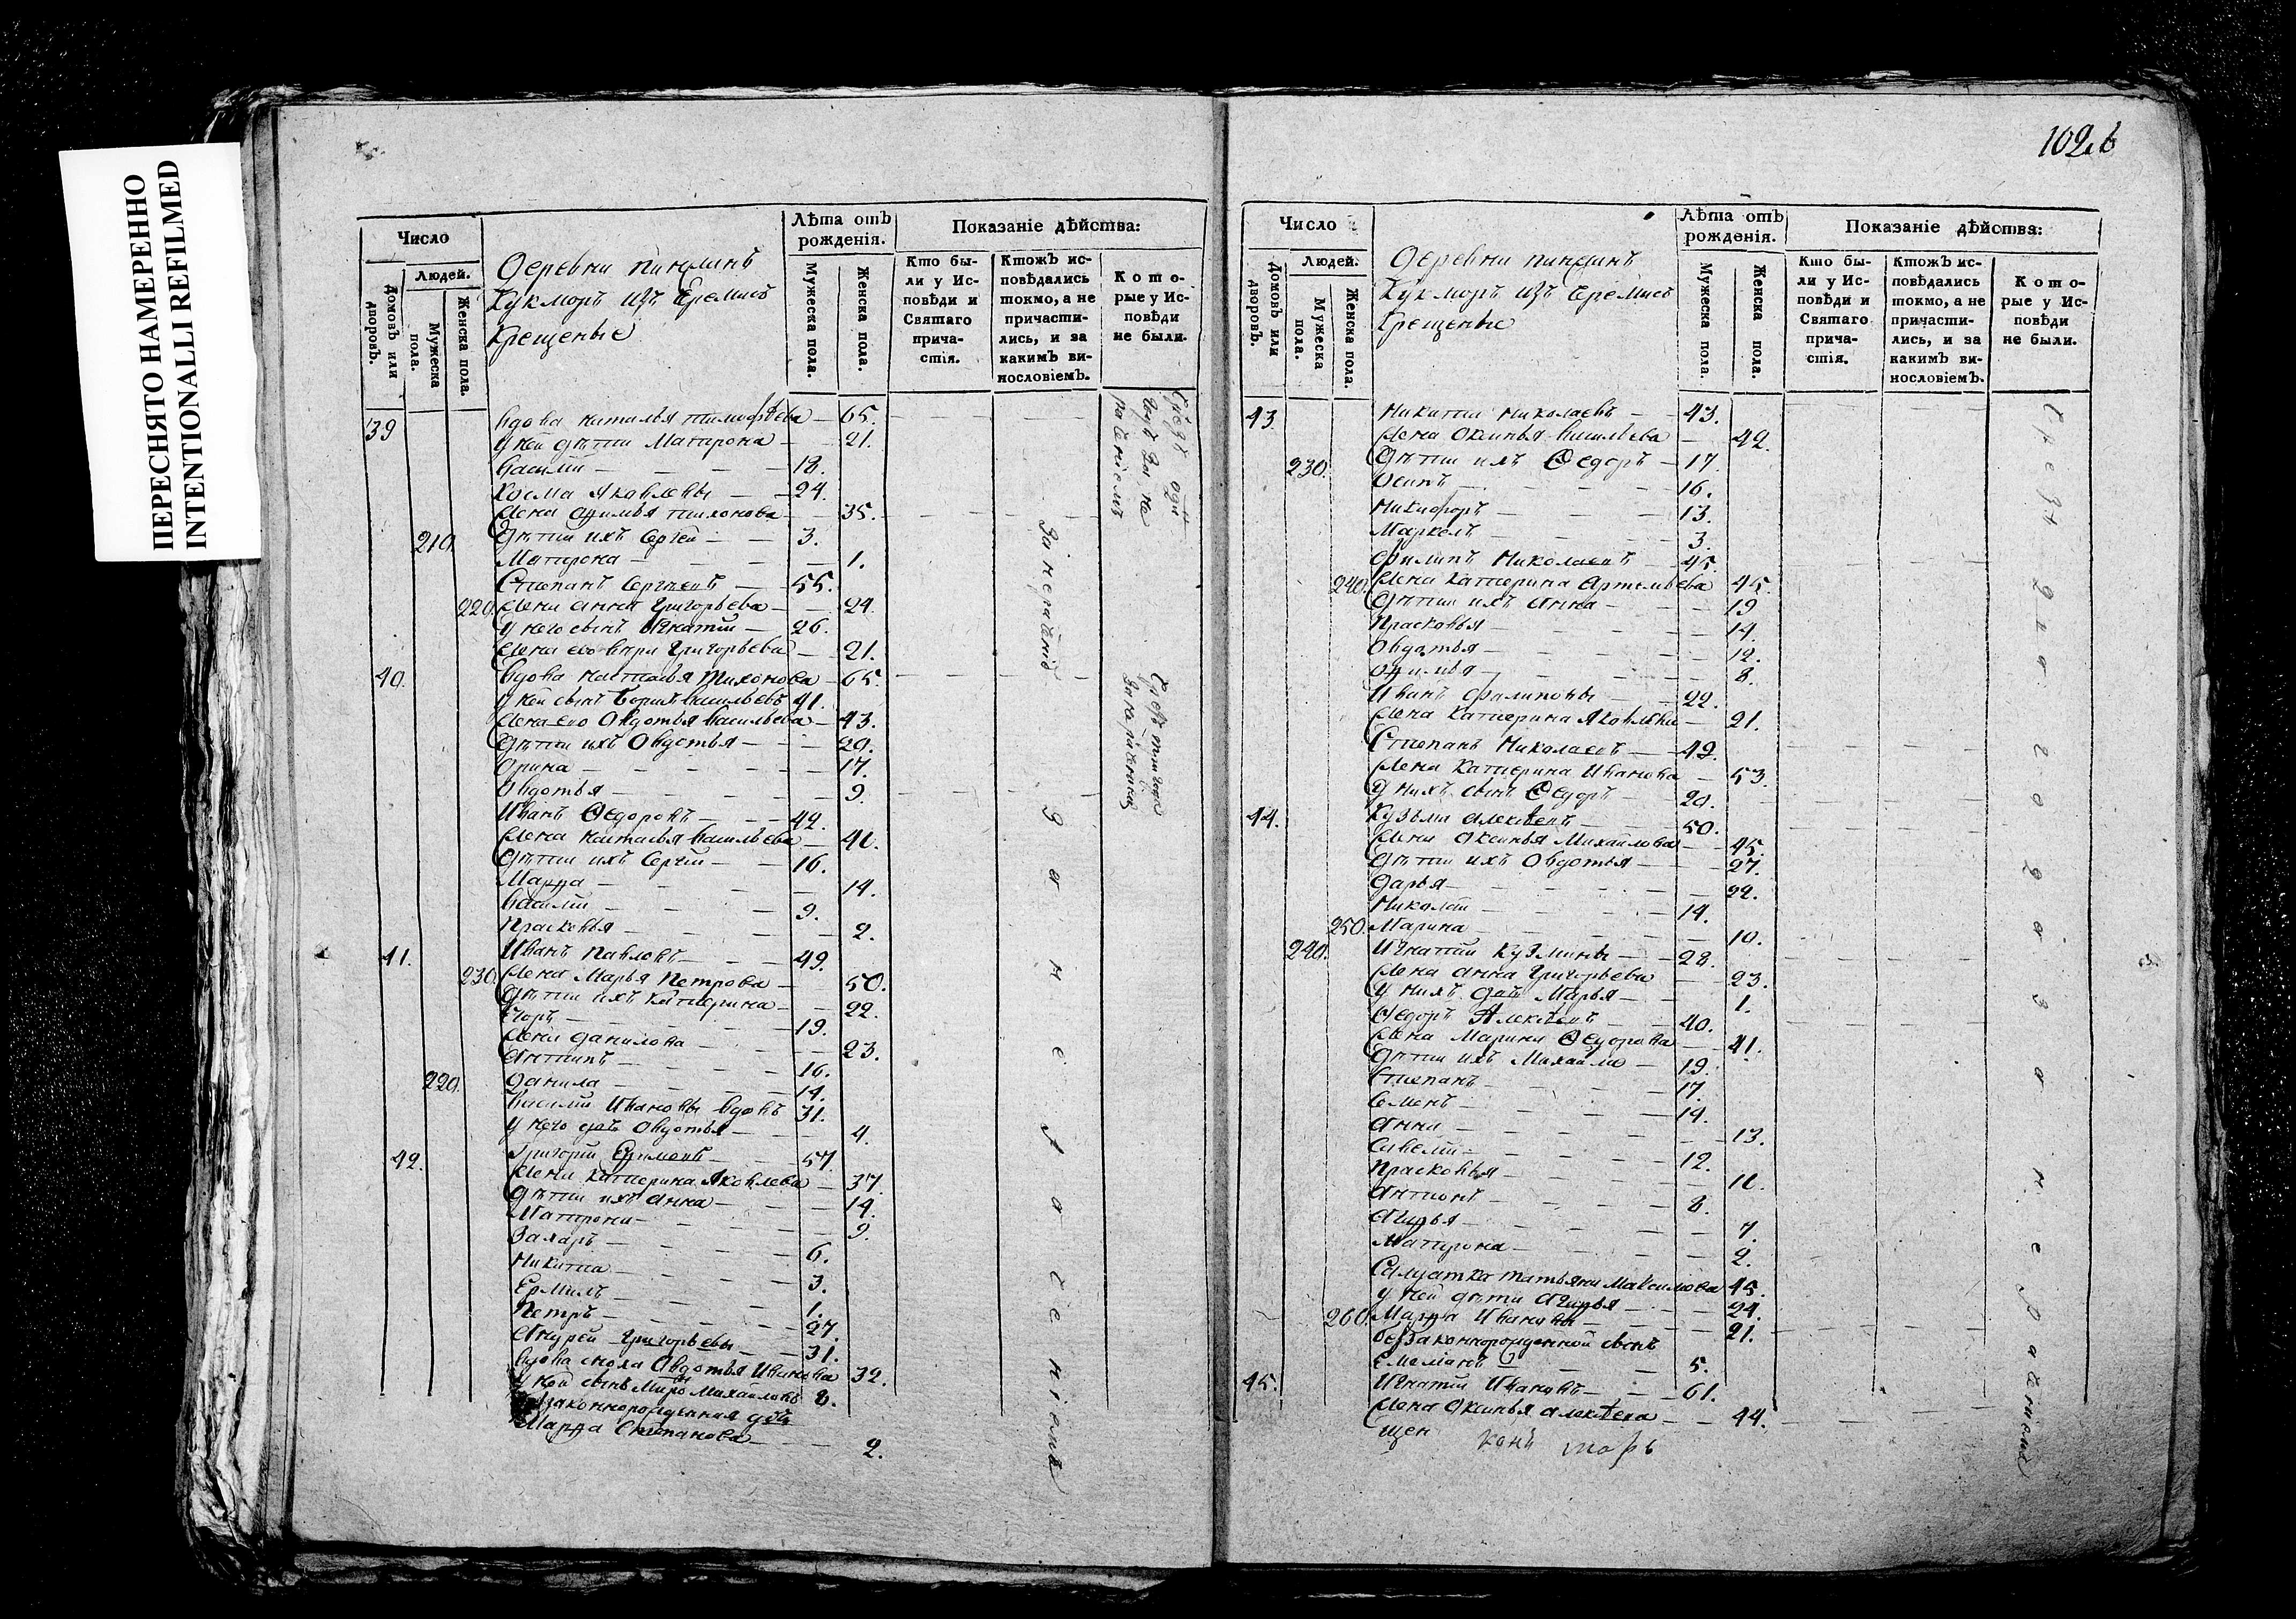 ПЕРЕСНЯТО НАМЕРЕННО
INTENTIONALLI REFILMED
Число
Людей.
Домовъ или дворовъ.
Мужеска пола.
Женска пола.
Деревни
Кукморъ изъ Черемисъ
Крещеные
Лѣта отъ рожденія.
Мужеска пола.
Женска пола.
Показаніе дѣйства:
Кто были у Исповѣди и Святаго причастія.
Ктожъ исповѣдались токмо, а не причастились, и за какимъ винословіемъ.
Которые у Исповѣди не были.
39 Вдова Наталья Тимофѣева — 65.
У ней дѣти Матрона — 21.
Василій — 18.
Козма Яковлевы — 24.
Жена Тихонова — 35.
210. Дѣти ихъ Сергей — 3.
Матрона — 1.
Степанъ Сергѣевъ — 55.
220. Жена Анна Григорьева — 24.
У него сынъ Игнатій — 26.
Жена его Григорьева — 21.
40. Вдова Наталья Тихонова — 65.
У ней сынъ Васильевъ 41.
Жена его Овдотья Васильева — 43.
Дѣти ихъ Овдотья — 20.
Орина — 17.
Овдотья — 9.
Иванъ Ѳедоровъ — 42.
Жена Наталья Васильева — 41.
Дѣти ихъ Сергѣй — 16.
Марѳа — 14.
Василій — 9.
Прасковья — 2.
41. Иванъ Павловъ — 49.
230. Жена Марья Петрова — 50.
Дѣти ихъ Катерина — 22.
Егоръ — 19.
Жена Данилова — 23.
Антипъ — 16.
220. Данила — 14.
Василій Ивановы вдовъ 31.
У него дочь Овдотья — 4.
42. Григорій — 57.
Жена Катерина Яковлева — 37.
Дѣти ихъ Анна — 14.
Матрона — 9.
Захаръ — 6.
Никита — 3.
Ермилъ — 1.
Петръ — 27.
Андрей Григорьевы — 31.
Вдова сноха Овдотья Иванова 32.
У ней сынъ Миронъ Михайловъ 8.
Незаконнорожденная дочь
Марѳа Степанова — 2.
За нераченіемъ
102.
Число
Людей.
Домовъ или дворовъ.
Мужеска пола.
Женска пола.
Деревни
Кукморъ изъ Черемисъ
Крещеные
Лѣта отъ рожденія.
Мужеска пола.
Женска пола.
Показаніе дѣйства:
Кто были у Исповѣди и Святаго причастія.
Ктожъ исповѣдались токмо, а не причастились, и за какимъ винословіемъ.
Которые у Исповѣди не были.
43. Никита Николаевъ — 43.
Жена Оксинья Васильева — 42.
230. Дѣти ихъ Ѳедоръ — 17.
Осипъ — 16.
Никифоръ — 13.
Маркелъ — 3.
Филипъ Николаевъ — 45.
240. Жена Катерина Артемьева 45.
Дѣти ихъ Анна — 19
Прасковья — 14.
Овдотья — 12.
Офимья — 8.
Иванъ Филиповы — 22.
Жена Катерина Яковлева — 21.
Степанъ Николаевъ — 49.
Жена Катерина Иванова — 53.
У нихъ сынъ Ѳедоръ — 20.
44. Кузьма Алексѣевъ — 50.
Жена Оксинья Михайлова — 45.
Дѣти ихъ Овдотья — 27.
Дарья — 22.
Николай — 14.
250. Марина — 10.
240. Игнатій Кузмины — 28.
Жена Анна Григорьева — 23.
У нихъ дочь Марья — 1.
Ѳедоръ Алексѣевъ — 40.
Жена Марина Ѳедорова — 41.
Дѣти ихъ Михайла — 19.
Степанъ — 17.
Семенъ — 14.
Анна — 13.
Савелій — 12.
Прасковья — 11.
Антонъ — 8.
7.
Матрона — 2.
Салдатка Татьяна Максимова 45.
У ней дѣти — 24.
260. Марѳа Ивановы — 21.
Незаконнорожденной сынъ
Емеліанъ — 5.
45. Игнатій Ивановъ — 61.
Жена Оксинья Алексѣева — 44.